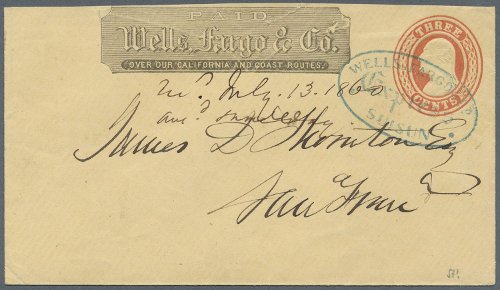 PAID
Wells, Fargo & Co.
OVER OUR CALIFORNIA AND COAST ROUTES.
THREE
CENTS
WELLS, FARGO
SUISUN
July 13. 1860
James D Thornton Esq
San Fran